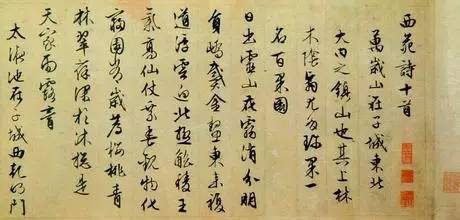 西苑詩十首
萬歲山在子城東北
大內之鎮山也其上林
木陰翳尤多珍果一
名百果園
日出靈山花霧消分明
員嶠戴金鰲東來複
道浮雲迥北極觚稜王
氣高仙仗乘春觀物化
寢園歲歲薦櫻桃青
林翠葆深於沐總是
天家雨露膏
太液池在子城西乾明門